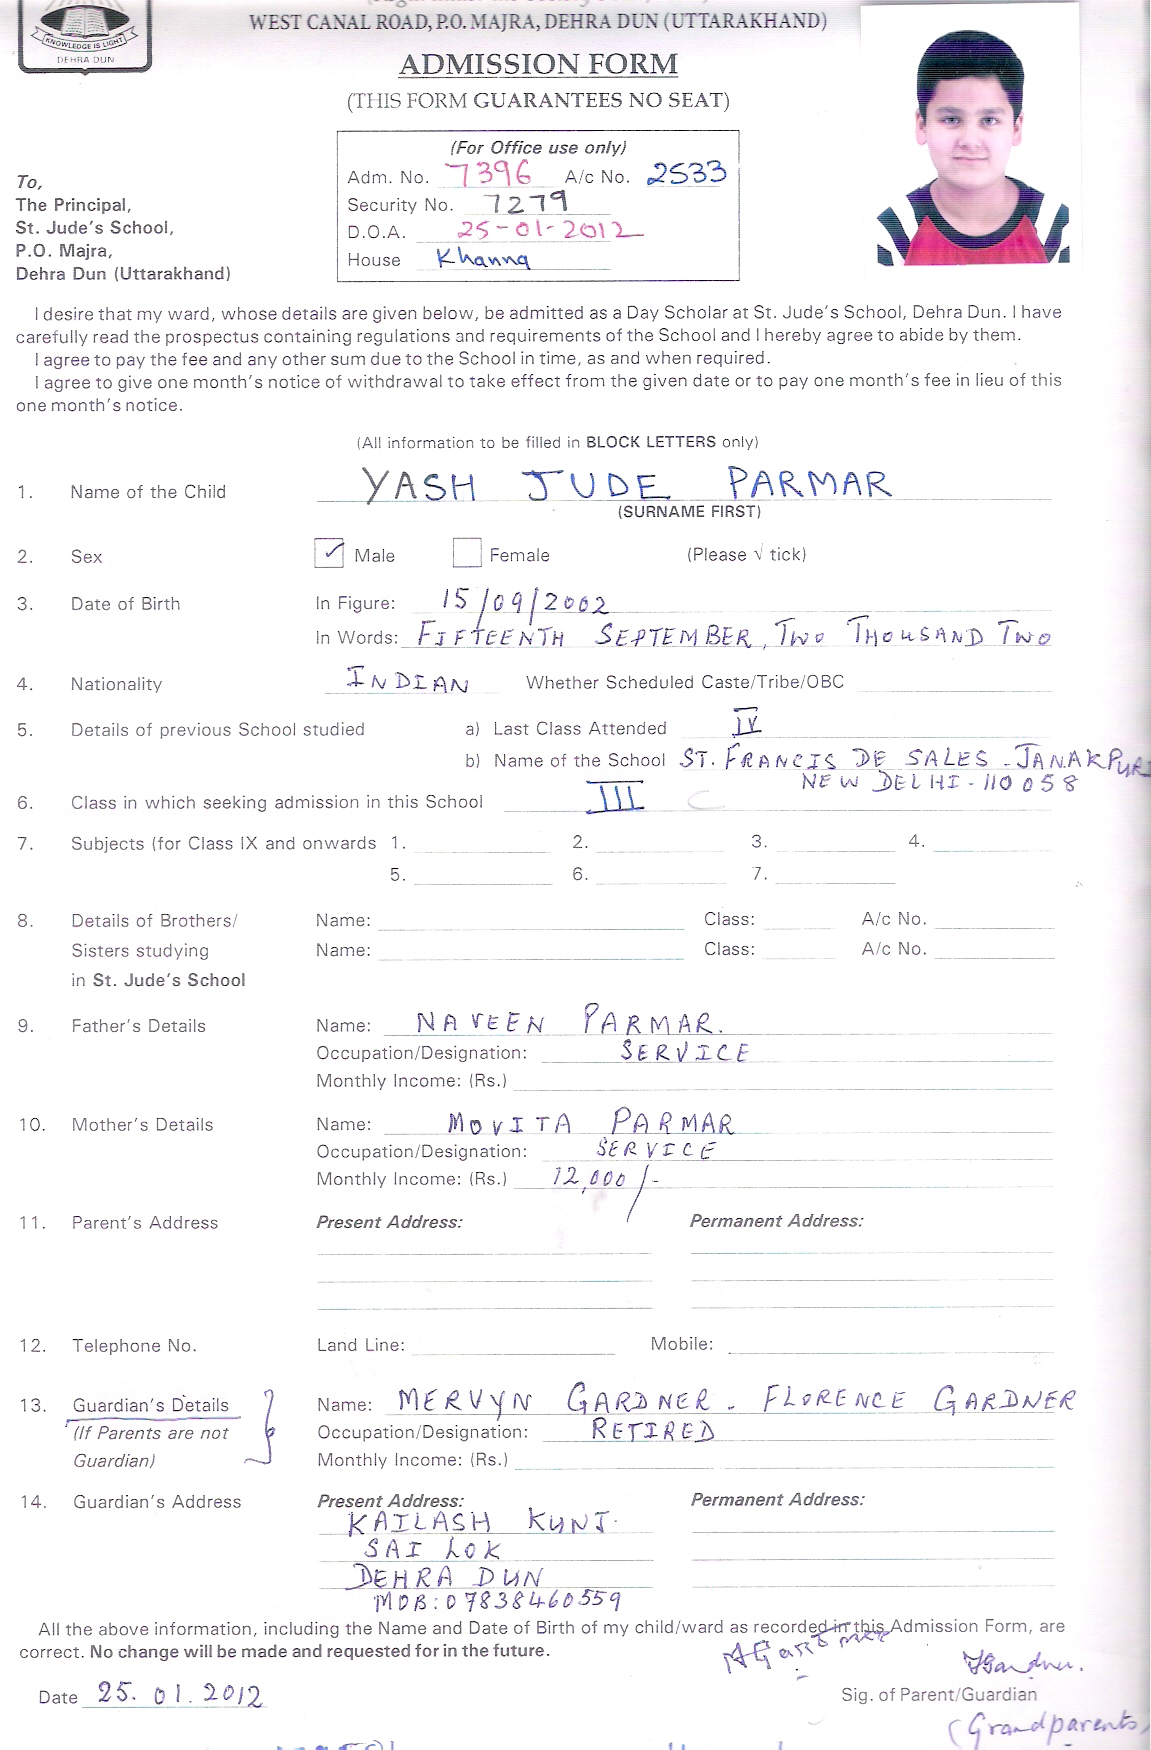 KNOWLEDGE IS LIGHT
DEHRA DUN
WEST CANAL ROAD, P.O. MAJRA, DEHRA DUN (UTTARAKHAND)
ADMISSION FORM
(THIS FORM GUARANTEES NO SEAT)
(For Office use only)
Adm. No. 7396 A/c No. 2533
Security No. 7279
D.O.A. 25-01-2012
House Khanna
To,
The Principal,
St. Jude's School,
P.O. Majra,
Dehra Dun (Uttarakhand)
I desire that my ward, whose details are given below, be admitted as a Day Scholar at St. Jude's School, Dehra Dun. I have
carefully read the prospectus containing regulations and requirements of the School and I hereby agree to abide by them.
I agree to pay the fee and any other sum due to the School in time, as and when required.
I agree to give one month's notice of withdrawal to take effect from the given date or to pay one month's fee in lieu of this
one month's notice.
(All information to be filled in BLOCK LETTERS only)
1. Name of the Child YASH JUDE PARMAR
(SURNAME FIRST)
2. Sex ✓ Male Female (Please √ tick)
3. Date of Birth In Figure: 15/09/2002
In Words: FIFTEENTH SEPTEMBER, TWO THOUSAND TWO
4. Nationality INDIAN Whether Scheduled Caste/Tribe/OBC
5. Details of previous School studied a) Last Class Attended IV
b) Name of the School ST. FRANCIS DE SALES - JANAKPURI
NEW DELHI - 110058
6. Class in which seeking admission in this School III C
7. Subjects (for Class IX and onwards 1. 2. 3. 4.
5. 6. 7.
8. Details of Brothers/ Name: Class: A/c No.
Sisters studying Name: Class: A/c No.
in St. Jude's School
9. Father's Details Name: NAVEEN PARMAR.
Occupation/Designation: SERVICE
Monthly Income: (Rs.)
10. Mother's Details Name: MOVITA PARMAR
Occupation/Designation: SERVICE
Monthly Income: (Rs.) 12,000/-
11. Parent's Address Present Address: Permanent Address:
12. Telephone No. Land Line: Mobile:
13. Guardian's Details Name: MERVYN GARDNER - FLORENCE GARDNER
(If Parents are not Occupation/Designation: RETIRED
Guardian) Monthly Income: (Rs.)
14. Guardian's Address Present Address: Permanent Address:
KAILASH KUNJ.
SAI LOK
DEHRA DUN
MOB: 07838460559
All the above information, including the Name and Date of Birth of my child/ward as recorded in this Admission Form, are
correct. No change will be made and requested for in the future.
Date 25.01.2012 Sig. of Parent/Guardian
(Grandparents)